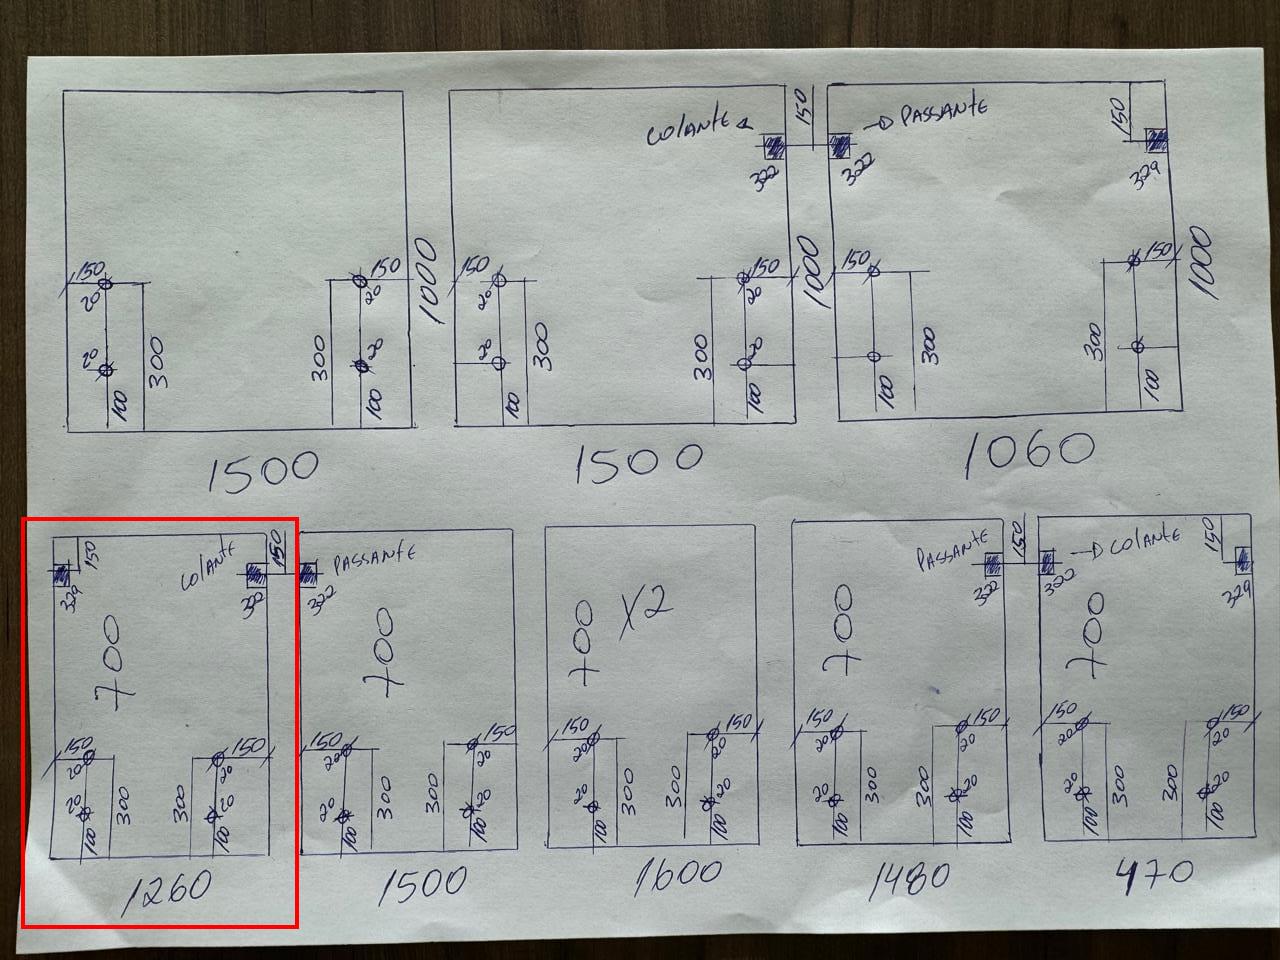 COLANTE
150
PASSANTE
150
322
322
329
150
20
20
100
300
150
20
20
100
300
1000
150
20
20
100
300
150
20
20
100
300
1000
150
100
300
150
100
300
1000
1500
1500
1060
150
329
COLANTE
322
150
700
150
20
20
100
300
150
20
20
100
300
1260
PASSANTE
322
700
150
20
20
100
300
150
20
20
100
300
1500
700 X2
150
20
20
100
300
150
20
20
100
300
1600
PASSANTE
322
150
700
150
20
20
100
300
150
20
20
100
300
1480
COLANTE
322
150
329
700
150
20
20
100
300
150
20
20
100
300
470